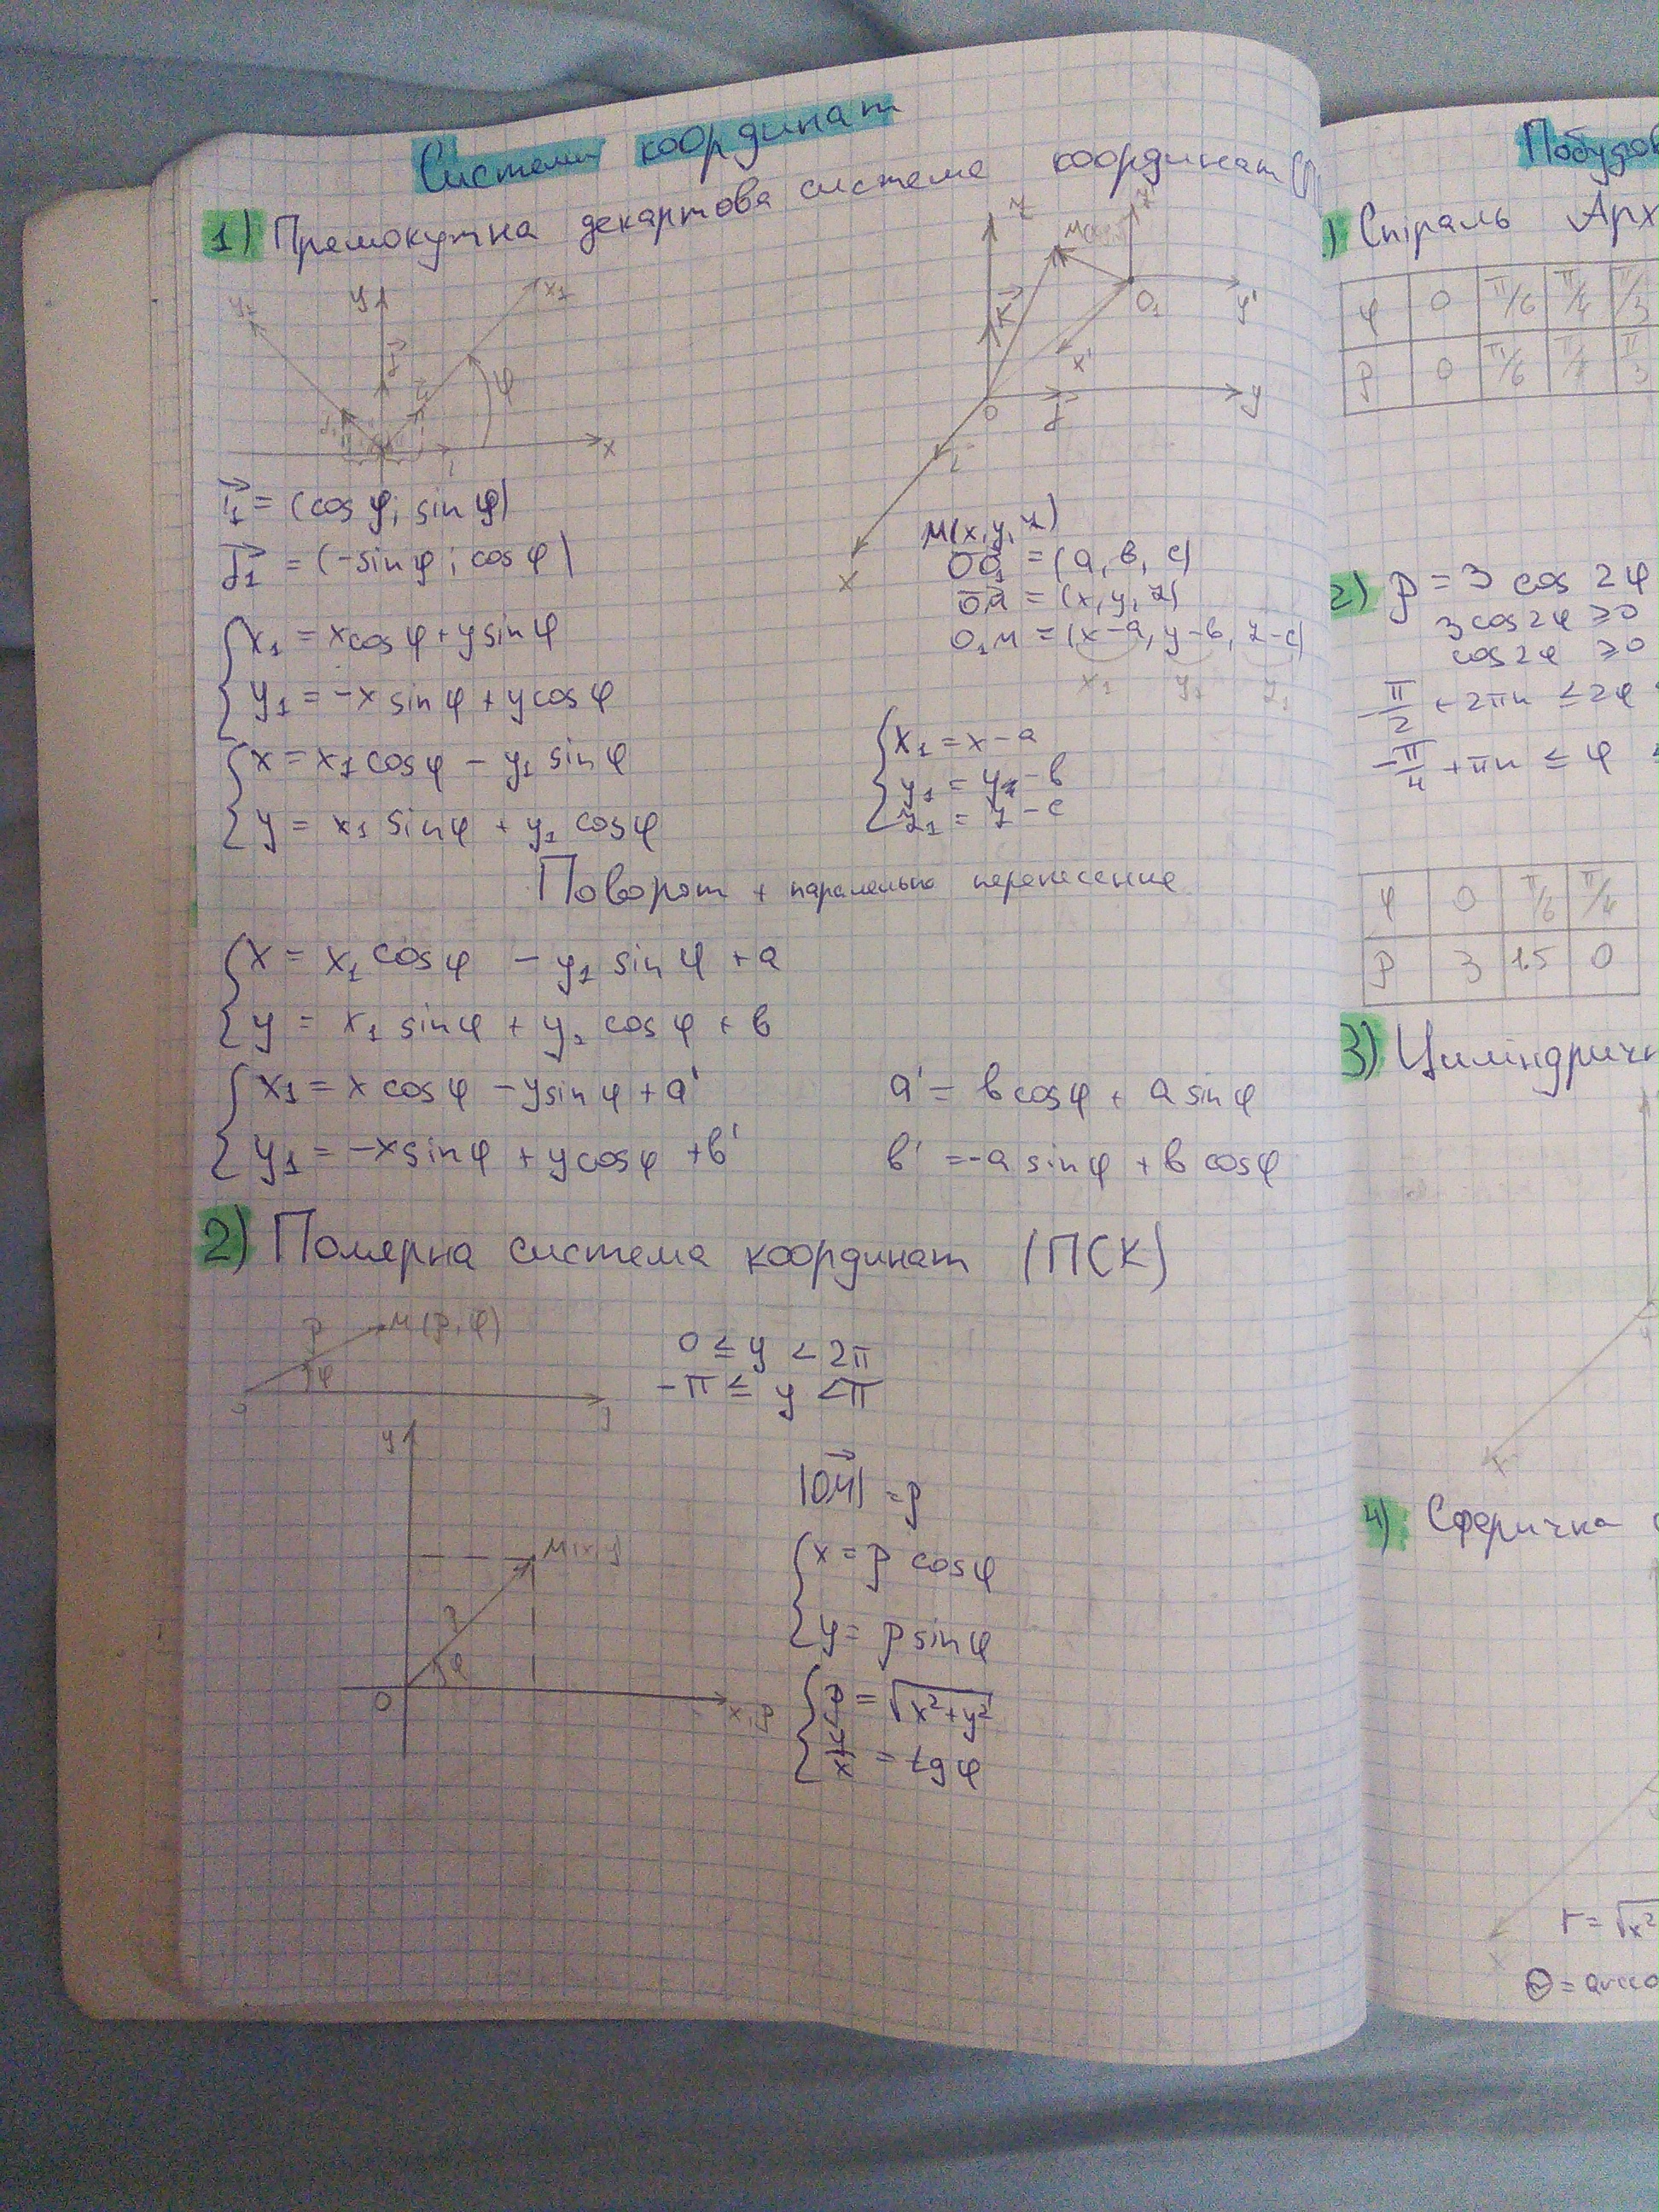 Системи координат
1) Прямокутна декартова система координат
y₁ y x₁
j φ
x
z
M
k
O₁ y'
x'
O j y
i
x
i₁ = (cos φ; sin φ)
j₁ = (-sin φ; cos φ)
x₁ = x cos φ + y sin φ
y₁ = -x sin φ + y cos φ
x = x₁ cos φ - y₁ sin φ
y = x₁ sin φ + y₁ cos φ
M(x, y, z)
OO₁ = (a, b, c)
OM = (x, y, z)
O₁M = (x-a, y-b, z-c)
x₁ y₁ z₁
x₁ = x - a
y₁ = y - b
z₁ = z - c
Поворот + паралельне перенесення
x = x₁ cos φ - y₁ sin φ + a
y = x₁ sin φ + y₁ cos φ + b
x₁ = x cos φ - y sin φ + a' a' = b cos φ + a sin φ
y₁ = -x sin φ + y cos φ + b' b' = -a sin φ + b cos φ
2) Полярна система координат (ПСК)
ρ M(ρ, φ)
φ
0 ≤ y < 2π
-π ≤ y < π
y
M(x, y)
ρ
φ
O x, ρ
|OM| = ρ
x = ρ cos φ
y = ρ sin φ
ρ = √x²+y²
y/x = tg φ
Побудов
1) Спіраль Арх
φ 0 π/6 π/4 π/3
ρ 0 π/6 π/4 π/3
2) ρ = 3 cos 2φ
3 cos 2φ ≥ 0
cos 2φ ≥ 0
-π/2 + 2πn ≤ 2φ
-π/4 + πn ≤ φ
φ 0 π/6 π/4
ρ 3 1.5 0
3) Циліндричн
4) Сферична
r = √x²
Θ = arcco